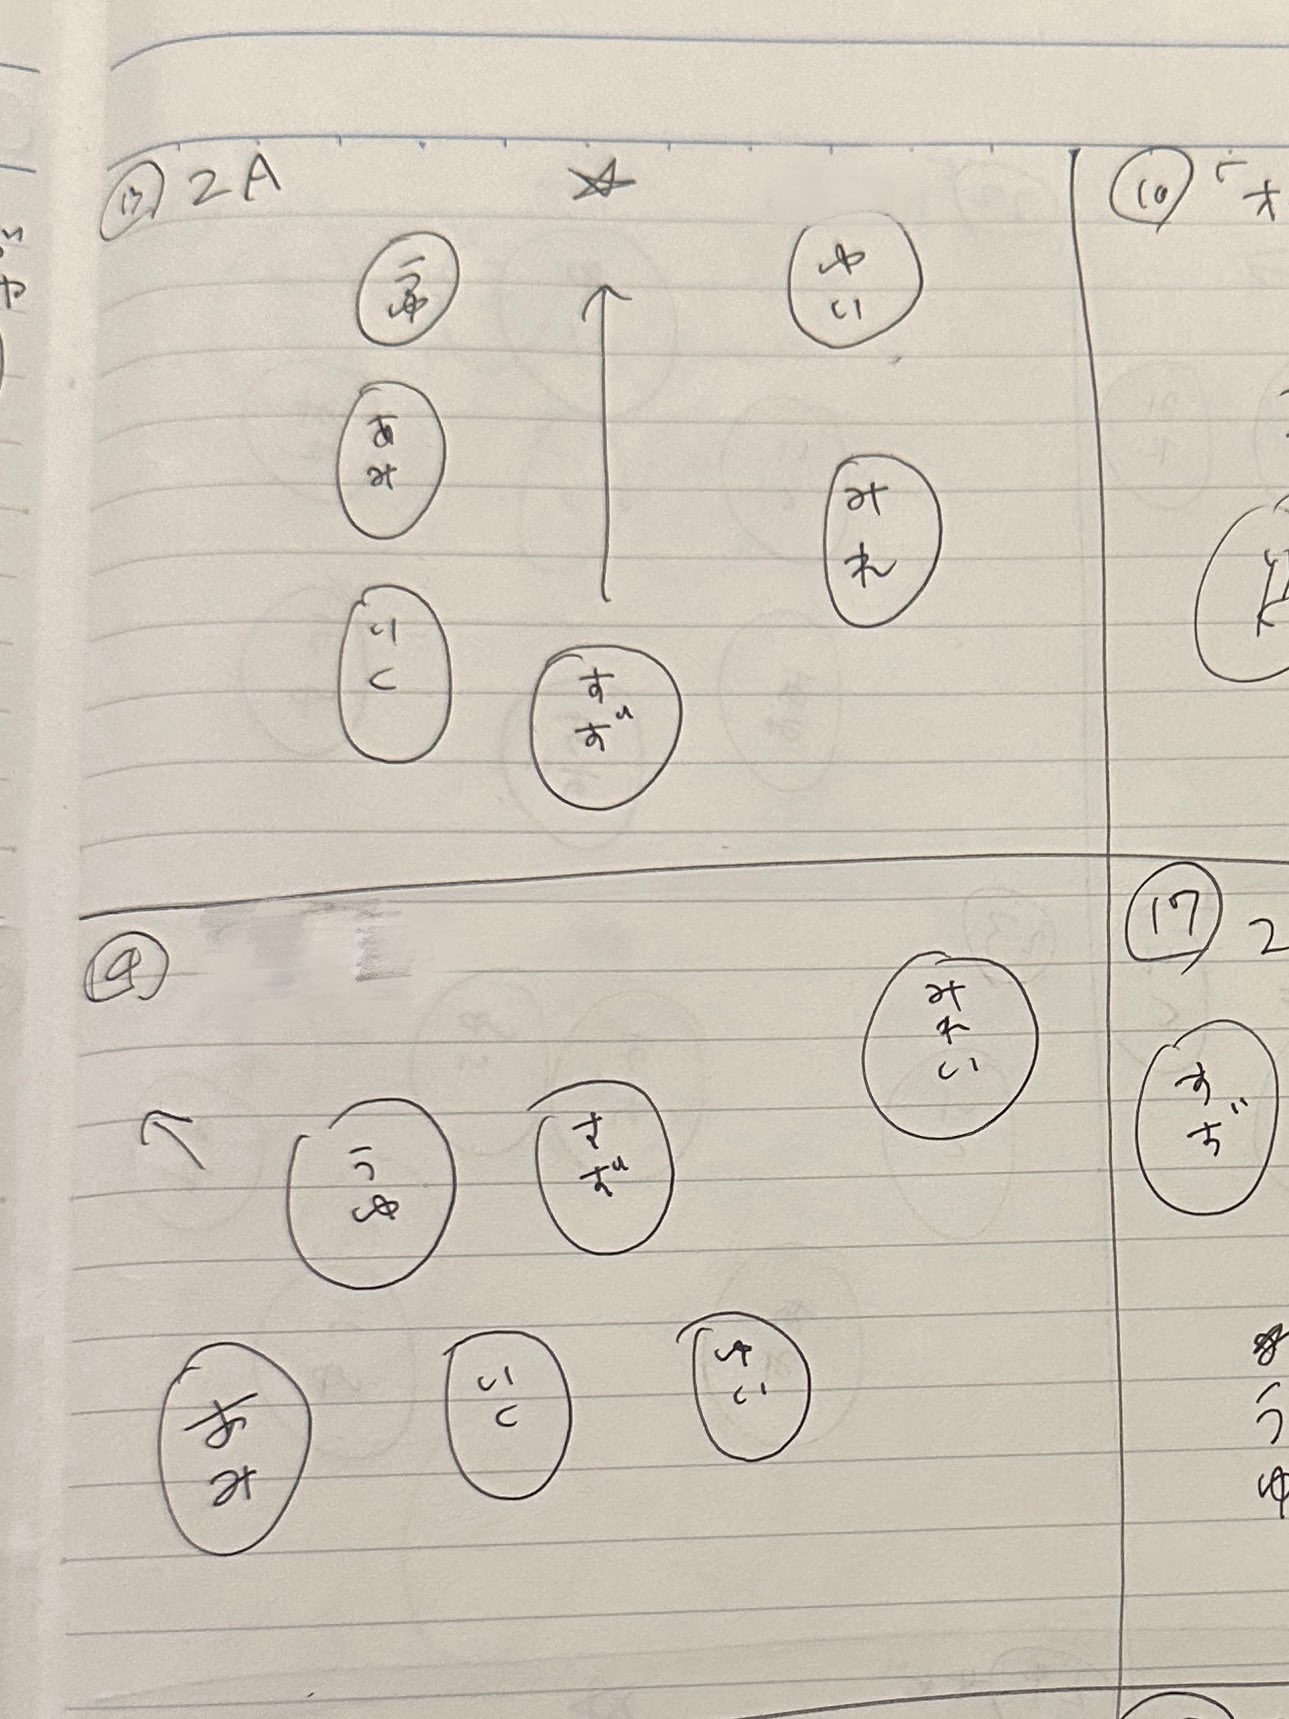 ⑬ 2A ☆
うゆ
ゆい
あみ
みれ
いく
すず
④
みれい
うゆ
すず
あみ
いく
ゆい
⑩
⑰ 2
すず
うゆ